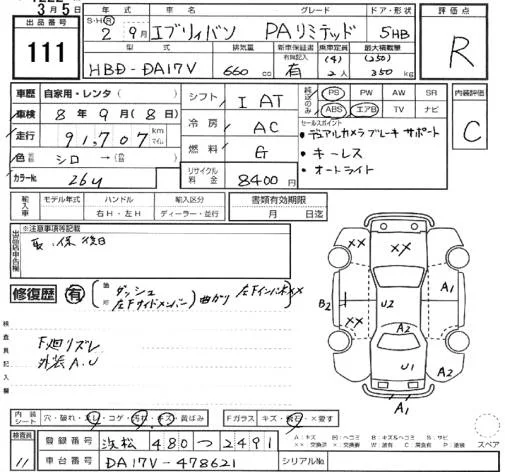 3月5日
出品番号
111
年式 車名 グレード ドア・形状
S・H・R
2 9月 エブリィバン PAリミテッド 5HB
型式 排気量 新車保証書 乗車定員 最大積載量
有無記入 (4) (250)
HBD-DA17V 660cc 有 2人 350kg
評価点
R
車歴 自家用・レンタ( )
車検 8年9月(8日)
走行 91,707 km マイル
色 シロ→( )
カラーNo. 26U
シフト I AT
冷房 AC
燃料 G
リサイクル料金 8400円
純正のみ
PS PW AW SR
ABS エアB TV ナビ
セールスポイント
・デュアルカメラブレーキサポート
・キーレス
・オートライト
内装評価
C
輸入車 モデル年式 ハンドル 輸入区分
右H・左H ディーラー・並行
書類有効期限
月 日迄
出品店申告欄
※注意事項等記載
取、保、後日
修復歴 有
ダッシュ
左Fサイドメンバー 曲がり 左Fインパネ××
検査員記入欄
F廻リズレ
外装A.U
×× ×× A1
B2 U2
A2
A2
U1
A1
A1
内装シート 穴・破れ・スレ・コゲ・汚れ・キズ・黄ばみ
Fガラス キズ・飛石・×要す
A:キズ U:ヘコミ B:キズ&ヘコミ S:サビ
××:交換済 ×:要交換 W:波有 C:腐食有 P:塗装
スペア
検査員 11
登録番号 浜松 480 つ 2491
車台番号 DA17V-478621
シリアルNo.